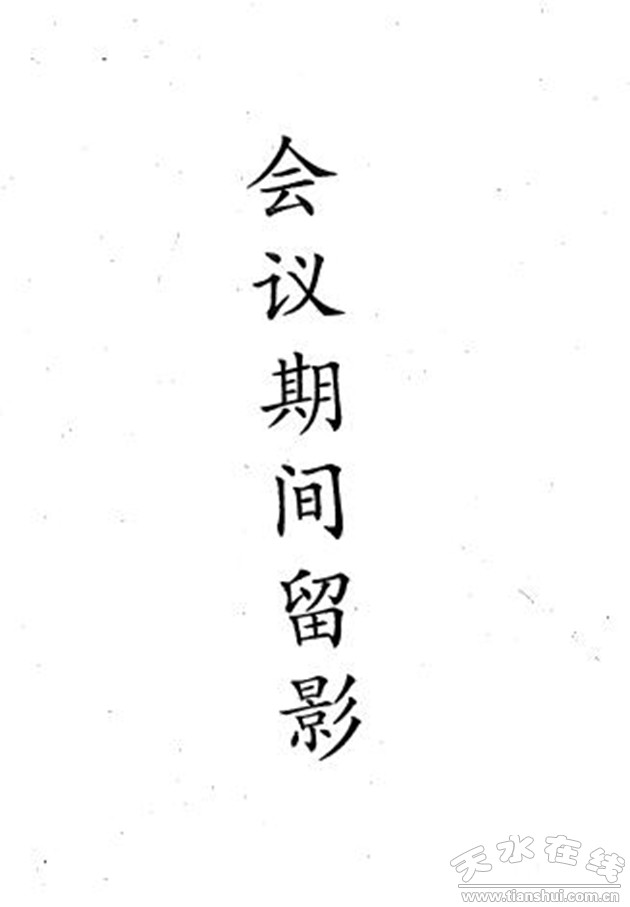 会议期间留影
天水在线
www.tianshui.com.cn